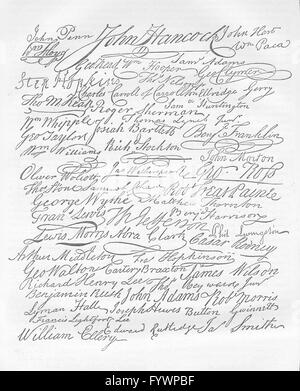 John Penn John Hancock John Hart
Wm Floyd Wm Paca
Geo Read Wm Hooper Sam Adams
Step Hopkins Geo Clymer
Charles Carroll of Carrollton Elbridge Gerry
Tho M Kean Roger Sherman Sam Huntington
Wm Whipple Thomas Lynch Junr
Geo Taylor Josiah Bartlett Benj Franklin
Wm Williams Rich Stockton John Morton
Oliver Wolcott Jas Witherspoon Geo Ross
Thos Stone Samuel Chase Rob Treat Paine
George Wythe Matthew Thornton
Fran Lewis Th Jefferson Benj Harrison
Lewis Morris Abra Clark Phil Livingston
Caesar Rodney
Arthur Middleton Fra Hopkinson
Geo Walton Carter Braxton James Wilson
Richard Henry Lee Tho Heyward Junr
Benjamin Rush John Adams Rob Morris
Lyman Hall Joseph Hewes Button Gwinnett
Francis Lightfoot Lee
William Ellery Edward Rutledge Ja Smith
alamy
Image ID: FYWPBF
www.alamy.com